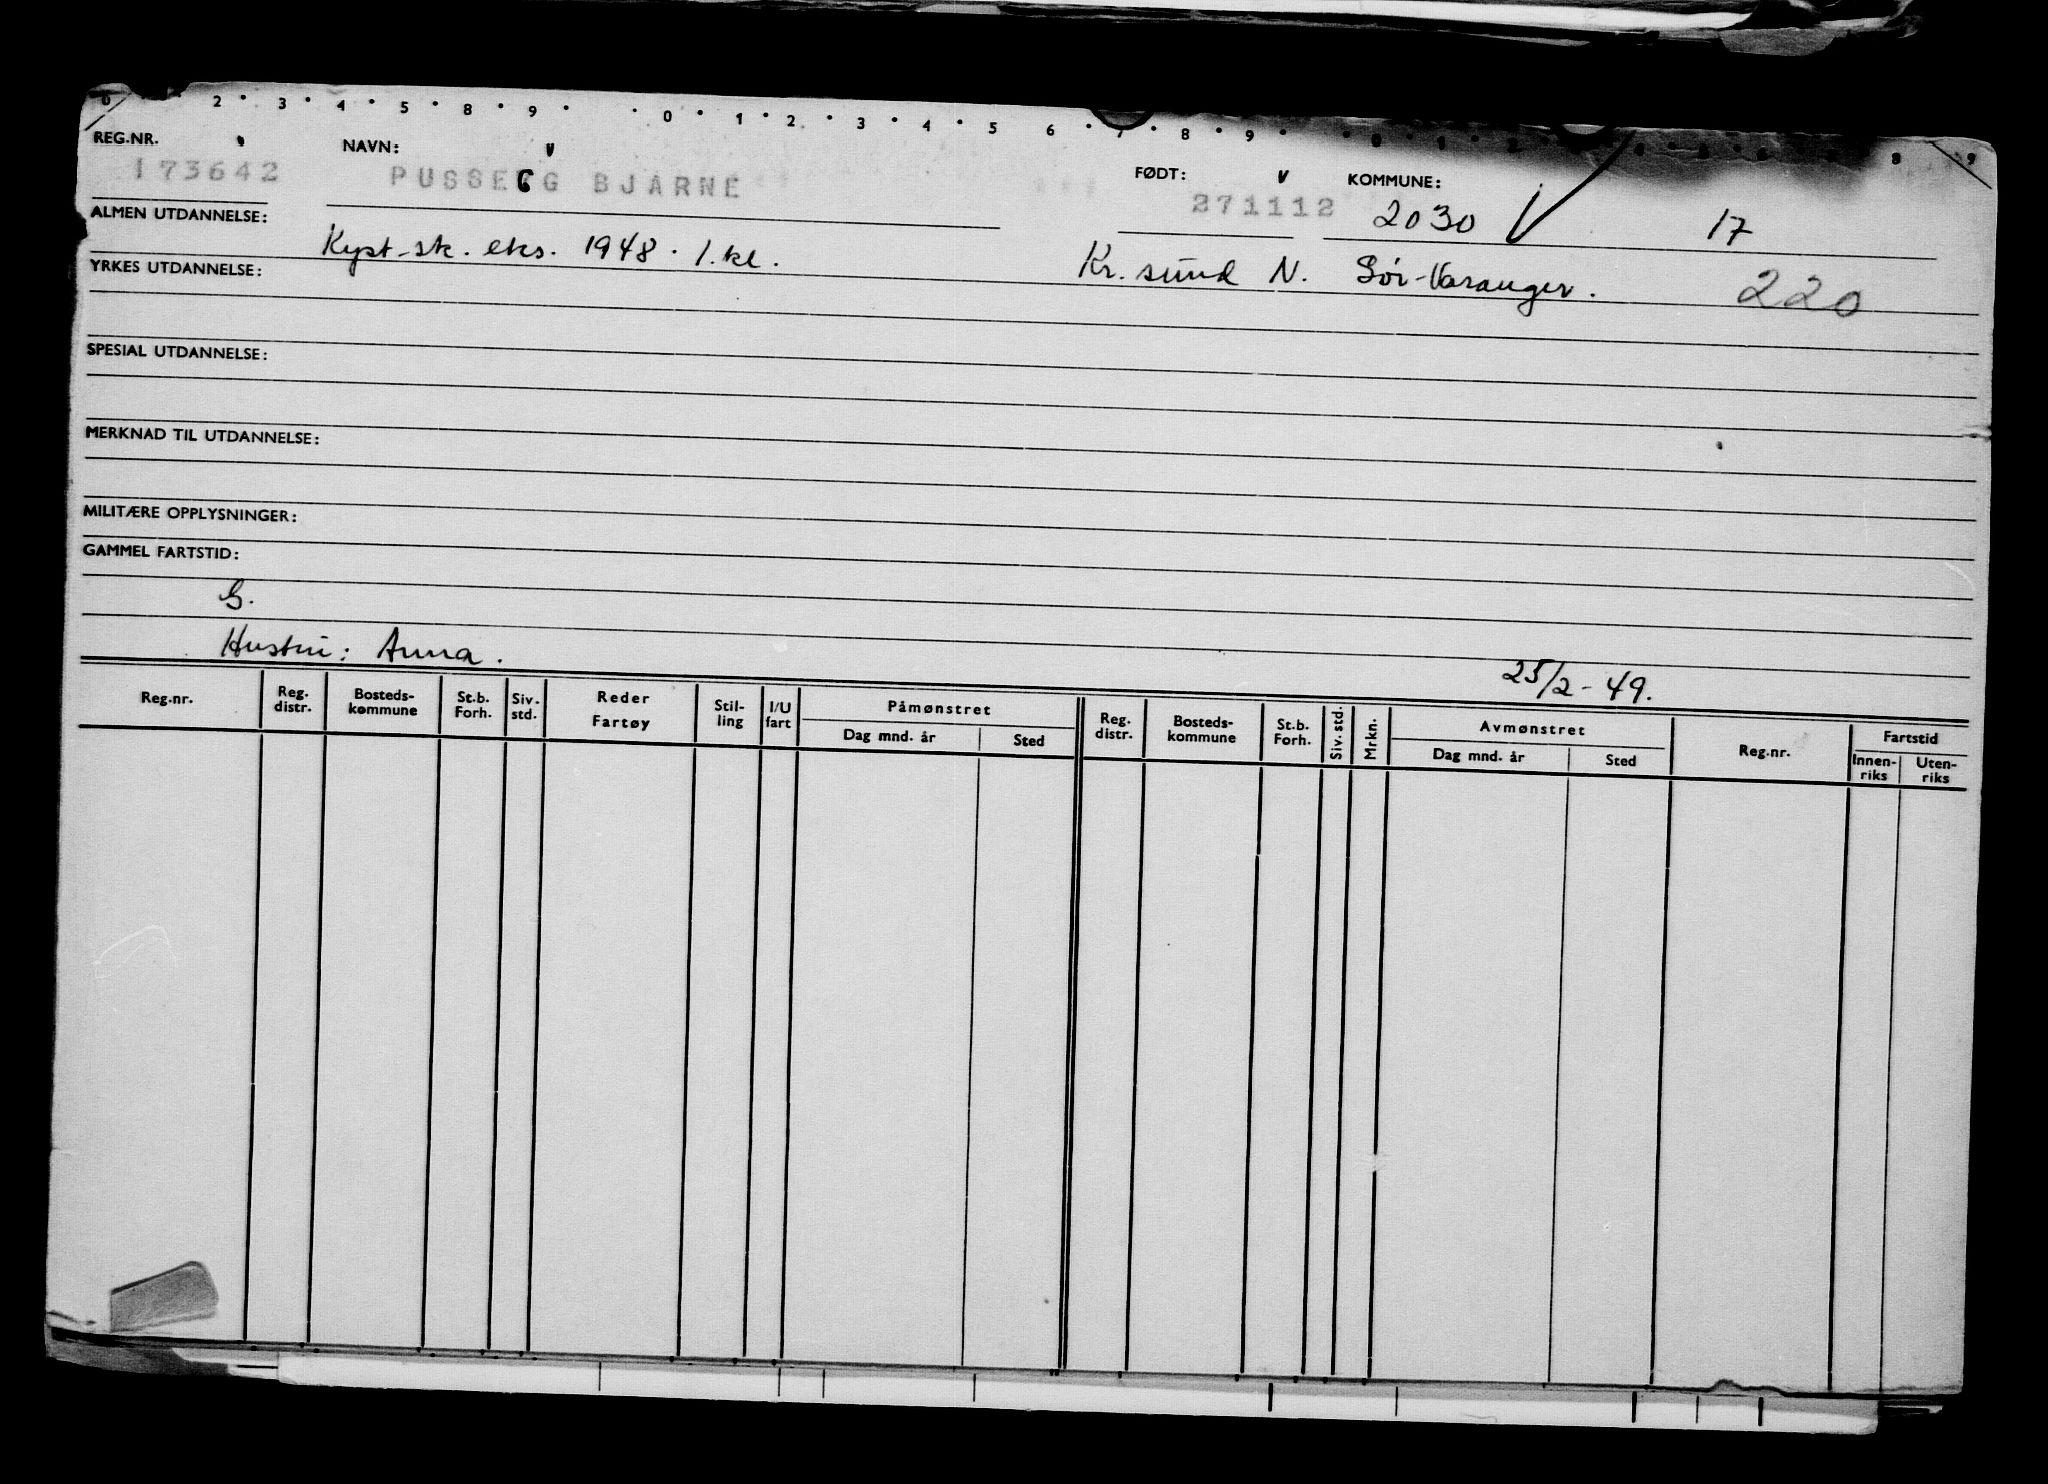 0 2 • 3 • 4 • 5 • 8 • 9 • • 0 • 1 • 2 • 3 • 4 • 5 6 • 7 • 8 • 9 • 8 9
REG.NR. NAVN: FØDT: KOMMUNE:
173642 PUSSEGG BJARNE 271112 2030 V 17
ALMEN UTDANNELSE:
Kyst-sk. eks. 1948. 1.kl. Kr. sund N. Sør-Varanger. 220
YRKES UTDANNELSE:
SPESIAL UTDANNELSE:
MERKNAD TIL UTDANNELSE:
MILITÆRE OPPLYSNINGER:
GAMMEL FARTSTID:
G.
Hustru: Anna. 25/2-49.
Reg.nr. Reg. distr. Bosteds-kommune St.b. Forh. Siv. std. Reder Fartøy Stil-ling I/U fart Påmønstret Dag mnd. år Sted Reg. distr. Bosteds-kommune St.b. Forh. Siv. std. Mrkn. Avmønstret Dag mnd. år Sted Reg.nr. Fartstid Innen-riks Uten-riks